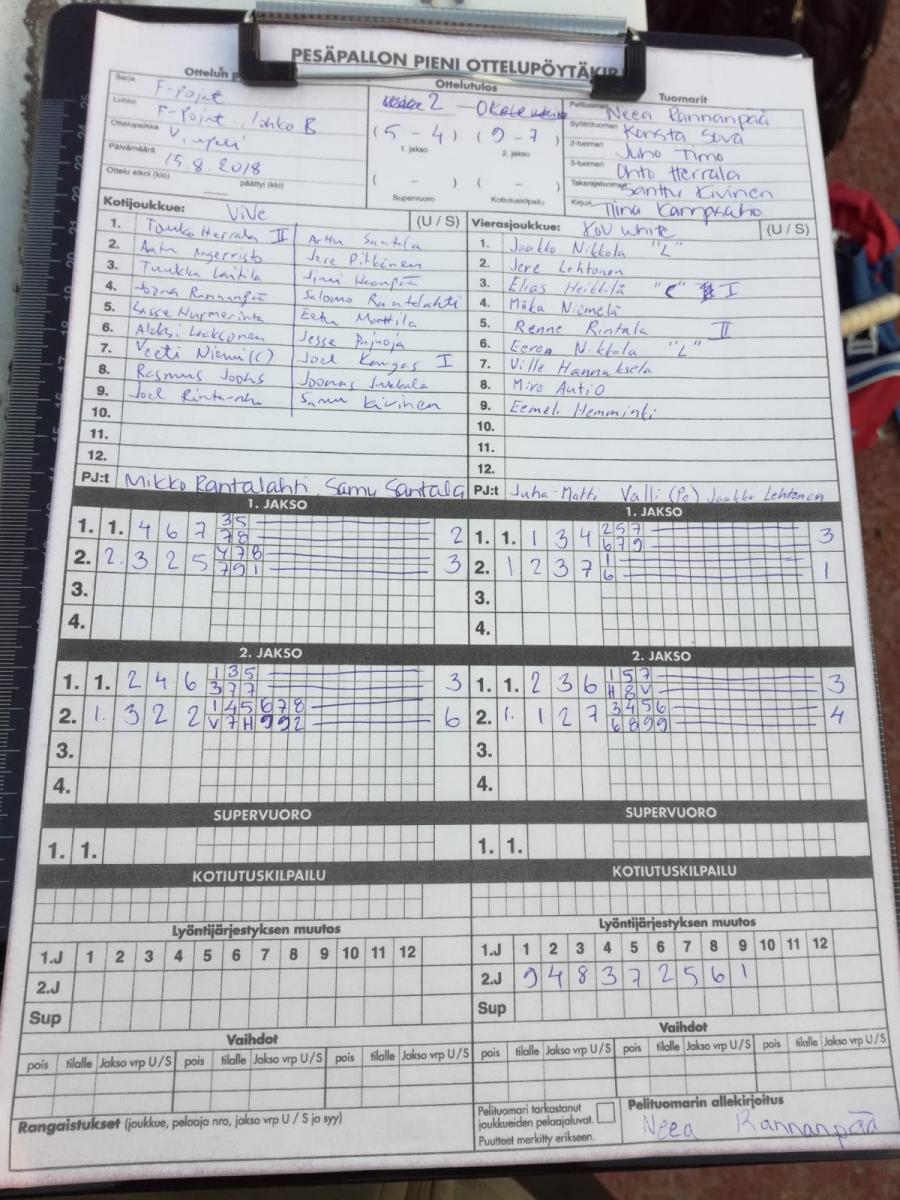 PESÄPALLON PIENI OTTELUPÖYTÄKIR
Ottelun p
Ottelutulos
Tuomarit
Sarja F-pojat
Lohko F-pojat, lohko B
Ottelupaikka Vimpeli
Päivämäärä 15.8.2018
Ottelu alkoi (klo) päättyi (klo)
2 - 0
(5 - 4) (9 - 7)
1. jakso 2. jakso
( - ) ( - )
Supervuoro Kotiutuskilpailu
Pelituomari Neea Rannanpää
Syöttötuomari Konsta Sova
2-tuomari Juho Timo
3-tuomari Ohto Herrala
Takarajatuomari Santtu Kivinen
Kirjuri Tiina Kamppaho
Kotijoukkue: ViVe (U / S)
1. Touko Herrala II Arttu Santala
2. Aatu Angerristo Jere Pitkänen
3. Tuukka Laitila
4. Joona Rannanpää Salomo Rantalahti
5. Lasse Nurmerinta Eetu Mattila
6. Aleksi Lackonen Jesse
7. Veeti Niemi (c) Joel Kangas I
8. Rasmus Joonas Jukkola
9. Joel Rinta-aho Samu Kivinen
10.
11.
12.
PJ:t Mikko Rantalahti, Samu Santala
Vierasjoukkue: KoU White (U / S)
1. Jaakko Nikkola "L"
2. Jere Lehtonen
3. Elias Heikkilä "C" I
4. Miika Niemelä
5. Renne Rintala II
6. Eeron Nikkola "L"
7. Ville Hannuksela
8. Miro Autio
9. Eemeli Hemminki
10.
11.
12.
PJ:t Juha-Matti Valli (Po) Jaakko Lehtonen
1. JAKSO
1. 1. 4 6 7 3 5 2
7 8
2. 2. 3 2 5 4 7 8 3
7 9 1
3.
4.
1. JAKSO
1. 1. 1 3 4 2 5 7 3
6 7 9
2. 1 2 3 7 1 1
6
3.
4.
2. JAKSO
1. 1. 2 4 6 1 3 5 3
3 7 7
2. 1. 3 2 2 1 4 5 6 7 8 6
V 7 H 9 9 2
3.
4.
2. JAKSO
1. 1. 2 3 6 1 5 7 3
H 8 V
2. 1. 1 2 7 3 4 5 6 4
6 8 9 9
3.
4.
SUPERVUORO
1. 1.
SUPERVUORO
1. 1.
KOTIUTUSKILPAILU
KOTIUTUSKILPAILU
Lyöntijärjestyksen muutos
1.J 1 2 3 4 5 6 7 8 9 10 11 12
2.J
Sup
Lyöntijärjestyksen muutos
1.J 1 2 3 4 5 6 7 8 9 10 11 12
2.J 9 4 8 3 7 2 5 6 1
Sup
Vaihdot
pois tilalle Jakso vrp U / S pois tilalle Jakso vrp U / S pois tilalle Jakso vrp U / S
Vaihdot
pois tilalle Jakso vrp U / S pois tilalle Jakso vrp U / S pois tilalle Jakso vrp U / S
Rangaistukset (joukkue, pelaaja nro, jakso vrp U / S ja syy)
Pelituomari tarkastanut
joukkueiden pelaajaluvat.
Puutteet merkitty erikseen.
Pelituomarin allekirjoitus
Neea Rannanpää